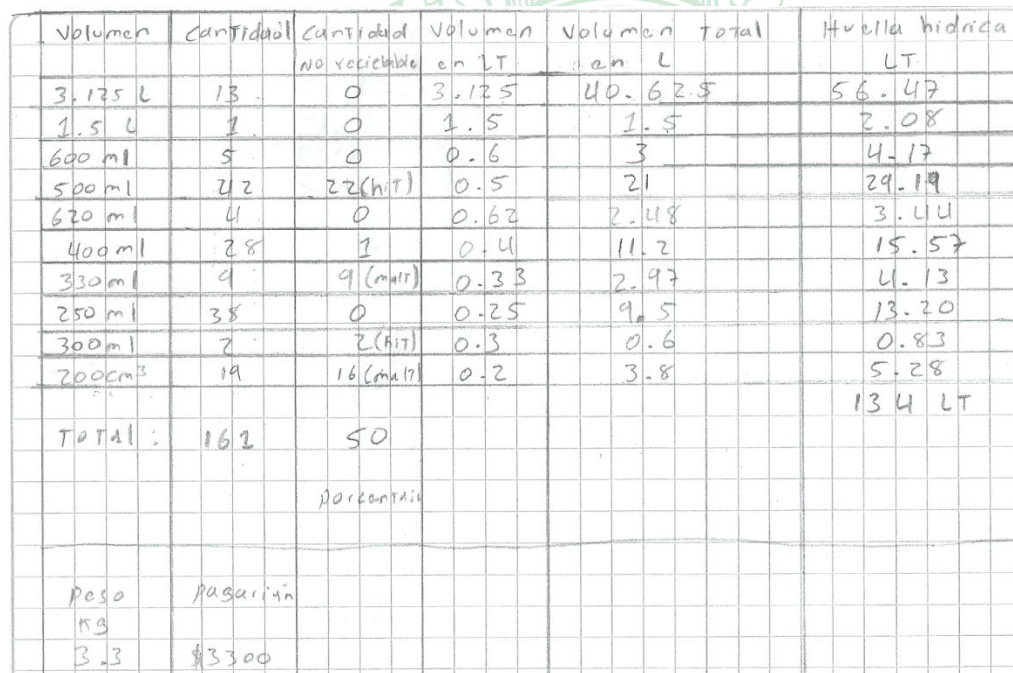 Volumen Cantidad Cantidad Volumen Volumen Total Huella hidrica
No reciclable en LT en L LT
3.125 L 13 0 3.125 40.625 56.47
1.5 L 1 0 1.5 1.5 2.08
600 ml 5 0 0.6 3 4.17
500 ml 42 22(hit) 0.5 21 29.19
620 ml 4 0 0.62 2.48 3.44
400 ml 28 1 0.4 11.2 15.57
330 ml 9 9 (malt) 0.33 2.97 4.13
250 ml 38 0 0.25 9.5 13.20
300 ml 2 2(hit) 0.3 0.6 0.83
200cm³ 19 16 (malt) 0.2 3.8 5.28
134 LT
Total: 161 50
Porcentaje
Peso Pagarian
Kg
3.3 $3300